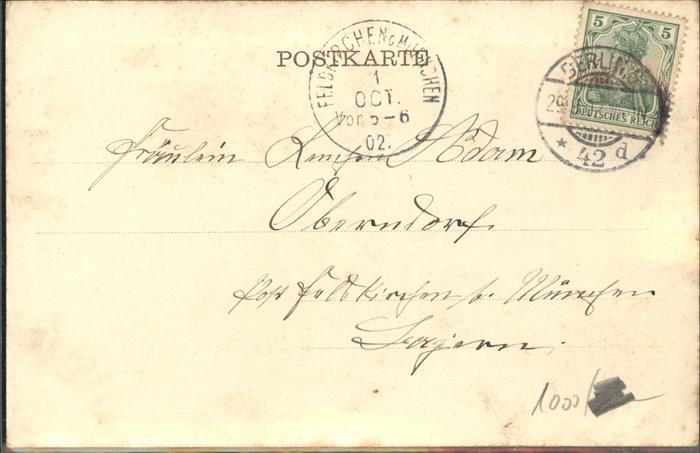 POSTKARTE
5 5
DEUTSCHES REICH
BERLIN
29
* 42 d
FELDKIRCHEN b. MÜNCHEN
1
OCT.
Vor 5-6
02.
Fräulein Lenchen Adam
Oberndorf
Post Feldkirchen b. München
Bayern.
1000